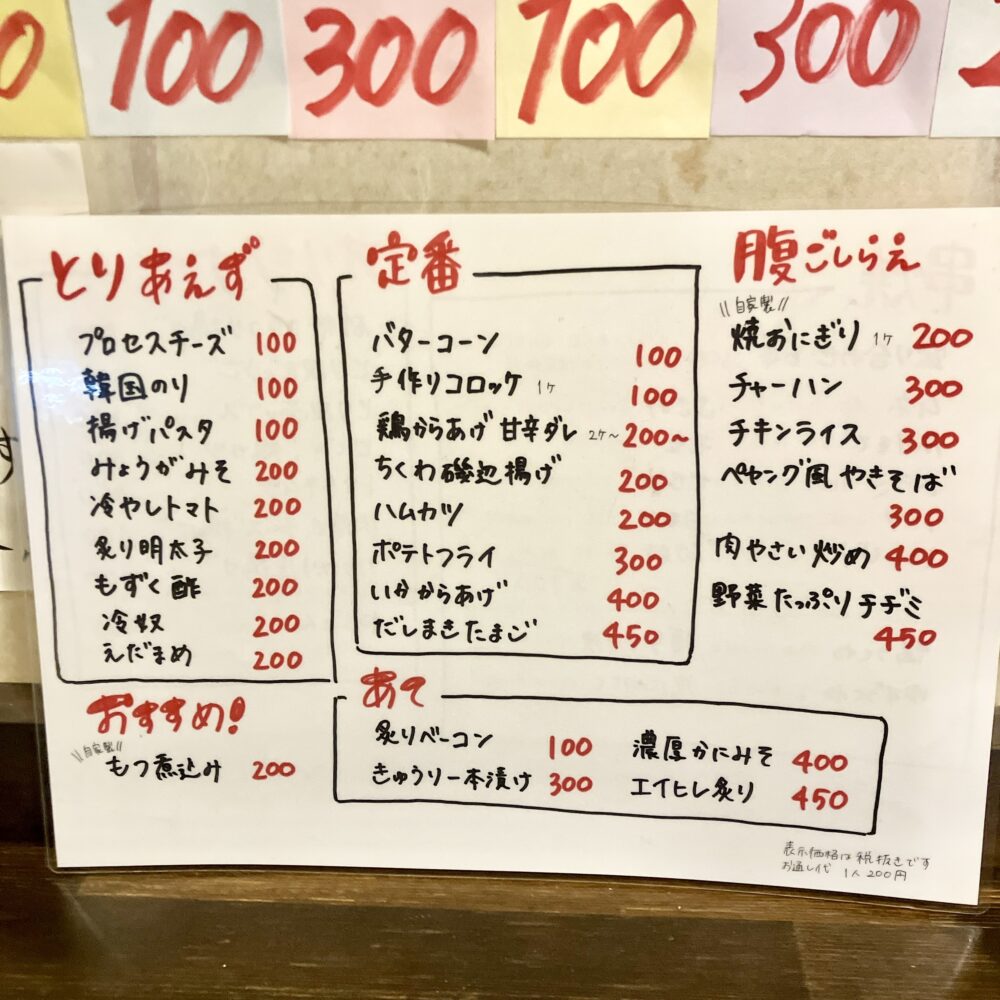 0 100 300 100 300
とりあえず
プロセスチーズ 100
韓国のり 100
揚げパスタ 100
みょうがみそ 200
冷やしトマト 200
炙り明太子 200
もずく酢 200
冷奴 200
えだまめ 200
おすすめ!
\\自家製//
もつ煮込み 200
定番
バターコーン 100
手作りコロッケ 1ヶ 100
鶏からあげ 甘辛ダレ 2ヶ〜 200〜
ちくわ磯辺揚げ 200
ハムカツ 200
ポテトフライ 300
いかからあげ 400
だしまきたまご 450
あて
炙りベーコン 100
きゅうり一本漬け 300
濃厚かにみそ 400
エイヒレ炙り 450
腹ごしらえ
\\自家製//
焼おにぎり 1ヶ 200
チャーハン 300
チキンライス 300
ペヤング風 やきそば
300
肉やさい炒め 400
野菜たっぷりチヂミ
450
表示価格は税抜きです
お通し代 1人200円